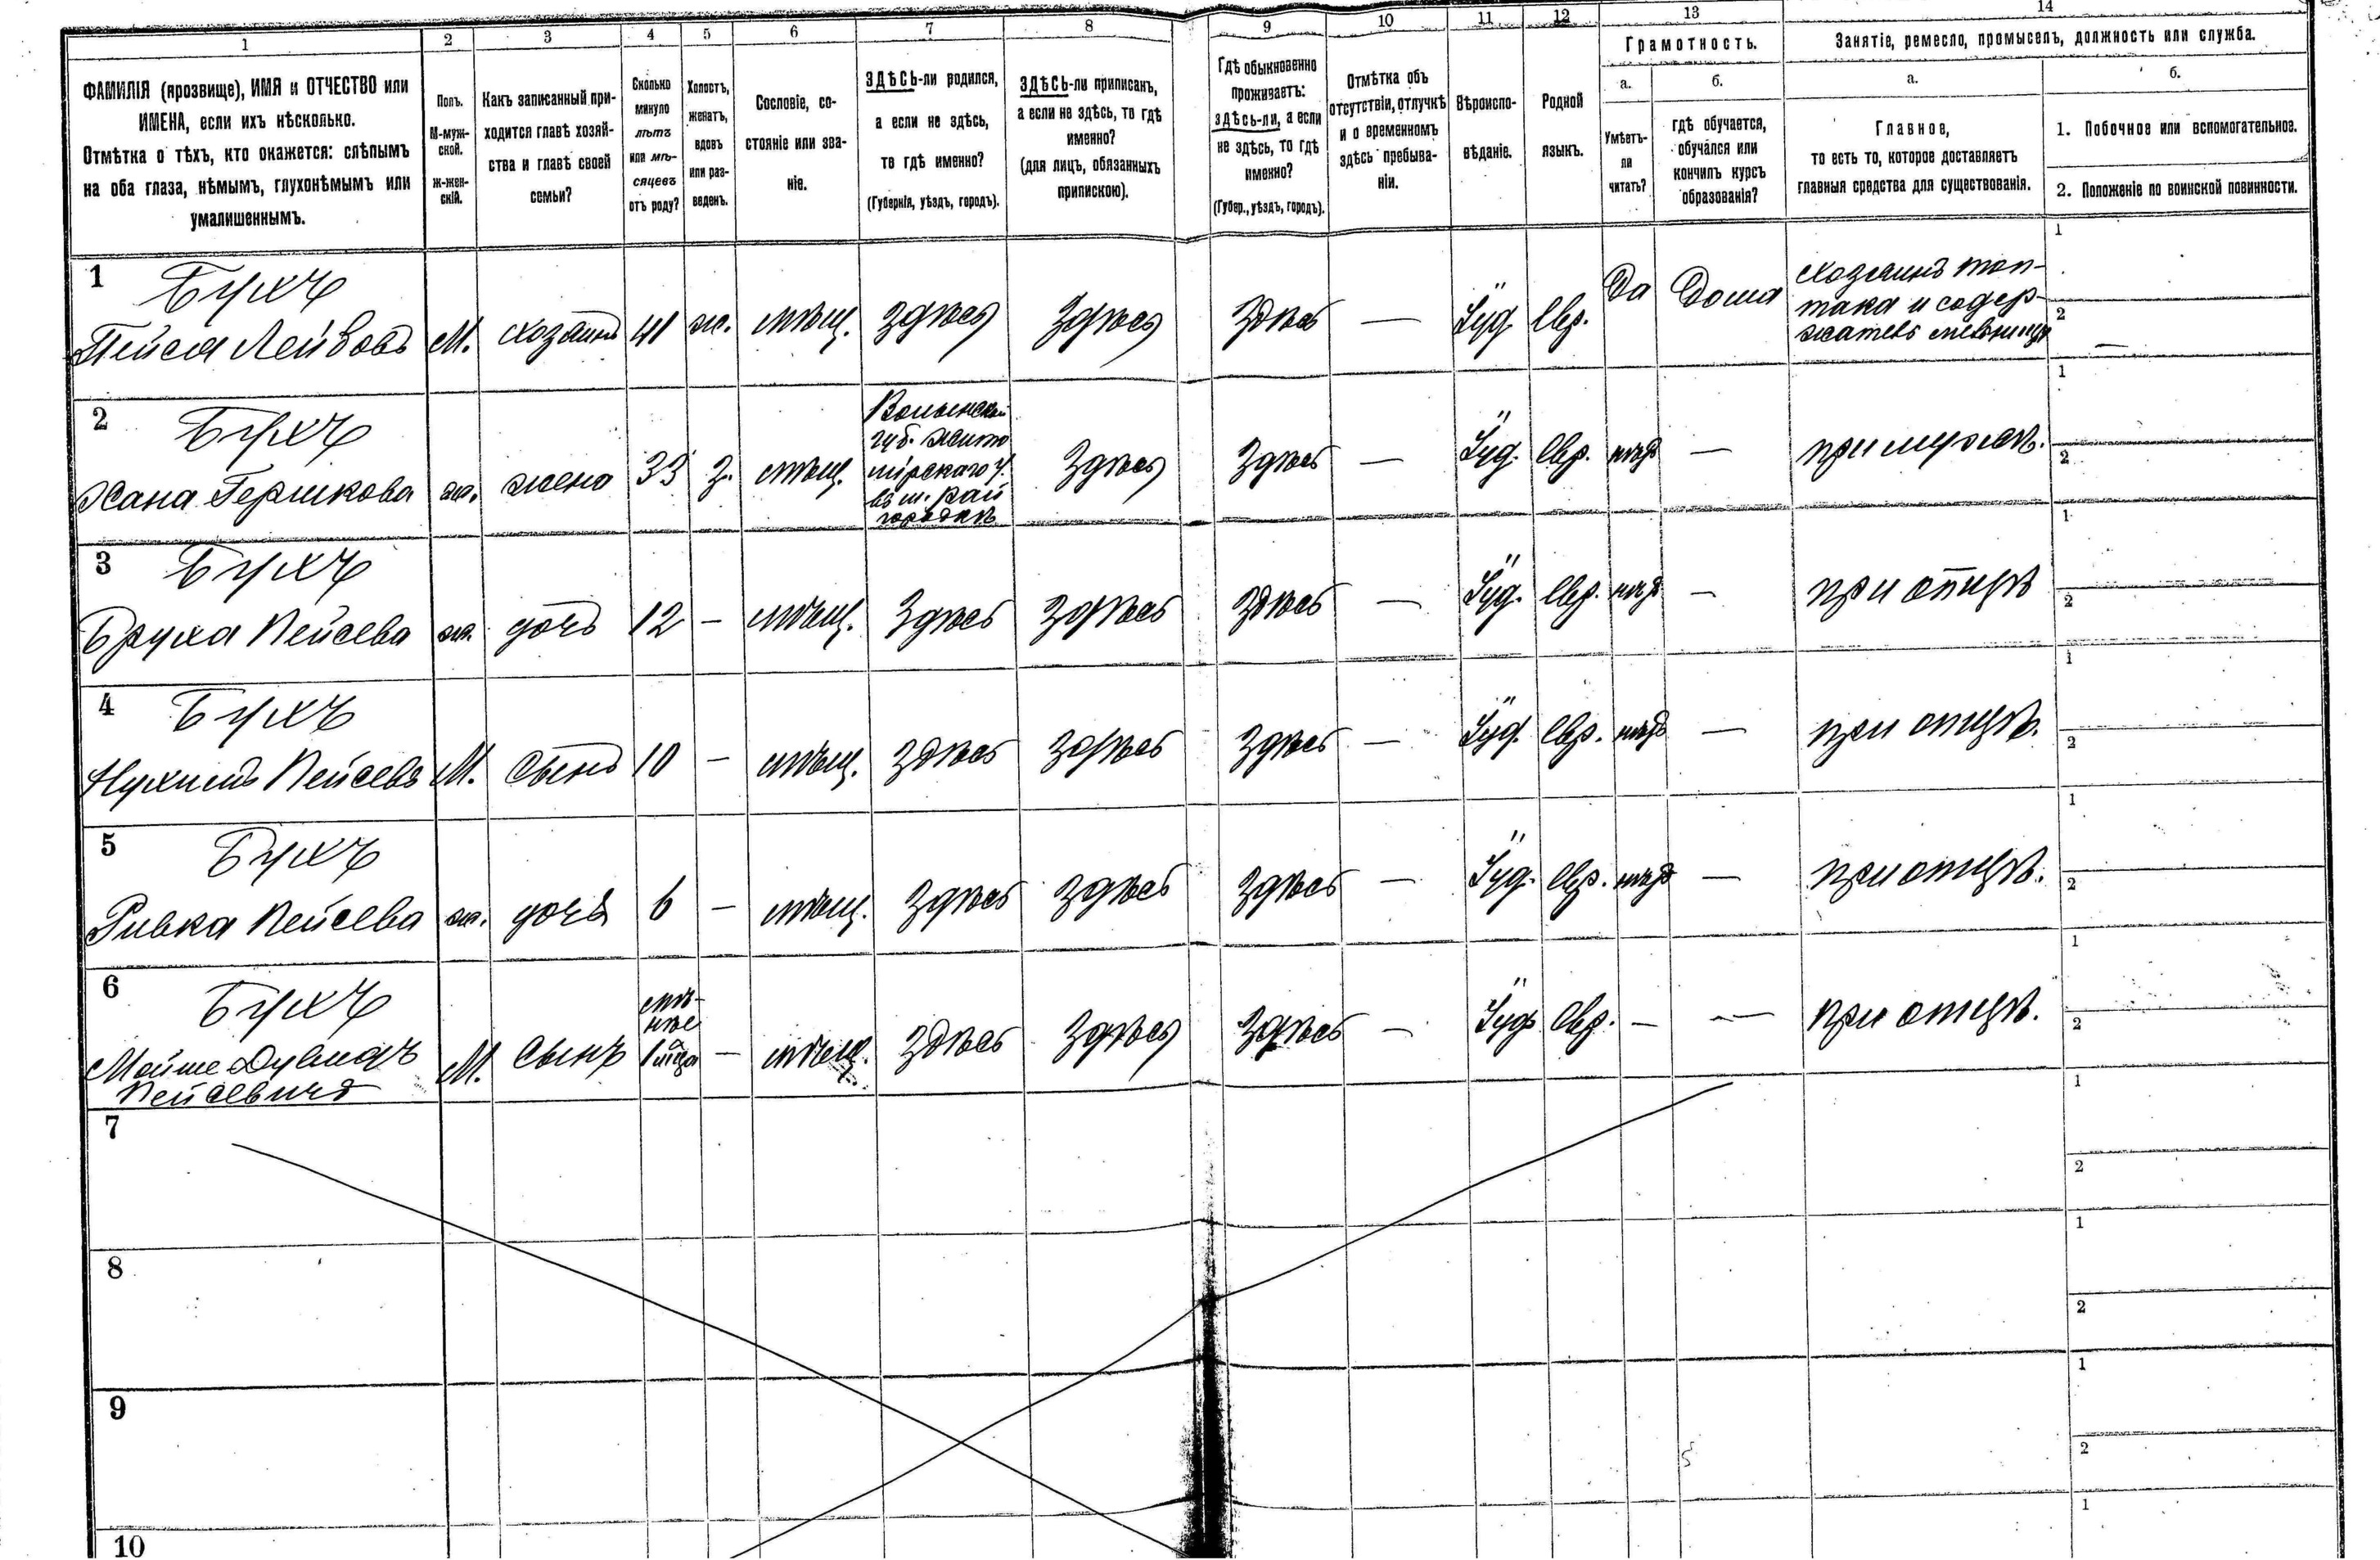 1 2 3 4 5 6 7 8 9 10 11 12 13 14
ФАМИЛІЯ (прозвище), ИМЯ и ОТЧЕСТВО или
ИМЕНА, если ихъ нѣсколько.
Отмѣтка о тѣхъ, кто окажется: слѣпымъ
на оба глаза, нѣмымъ, глухонѣмымъ или
умалишеннымъ.
Полъ.
М-муж-
ской.
Ж-жен-
скій.
Какъ записанный при-
ходится главѣ хозяй-
ства и главѣ своей
семьи?
Сколько
минуло
лѣтъ
или мѣ-
сяцевъ
отъ роду?
Холостъ,
женатъ,
вдовъ
или раз-
веденъ.
Сословіе, со-
стояніе или зва-
ніе.
ЗДѢСЬ-ли родился,
а если не здѣсь,
то гдѣ именно?
(Губернія, уѣздъ, городъ).
ЗДѢСЬ-ли приписанъ,
а если не здѣсь, то гдѣ
именно?
(для лицъ, обязанныхъ
припискою).
Гдѣ обыкновенно
проживаетъ:
здѣсь-ли, а если
не здѣсь, то гдѣ
именно?
(Губер., уѣздъ, городъ).
Отмѣтка объ
отсутствіи, отлучкѣ
и о временномъ
здѣсь пребыва-
ніи.
Вѣроиспо-
вѣданіе.
Родной
языкъ.
Грамотность.
а.
Умѣетъ-
ли
читать?
б.
гдѣ обучается,
обучался или
кончилъ курсъ
образованія?
Занятіе, ремесло, промыселъ, должность или служба.
а.
Главное,
то есть то, которое доставляетъ
главныя средства для существованія.
б.
1. Побочное или вспомогательное.
2. Положеніе по воинской повинности.
1
Бухъ
Пейса Лейбовъ М. хозяинъ 41 ж. мѣщ. здѣсь здѣсь здѣсь — Іуд. Евр. Да Дома
хозяинъ топ-
така и содер-
жатель
1
2 —
2
Бухъ
Хана Гершкова ж. жена 33 з. мѣщ.
Волынской
губ. Жито
мірскаго у.
въ м. Рай
городкѣ
здѣсь здѣсь — Іуд. Евр. нѣтъ — при мужѣ.
1
2
3
Бухъ
Бруха Пейсева ж. дочь 12 — мѣщ. здѣсь здѣсь здѣсь — Іуд. Евр. нѣтъ — при отцѣ
1
2
4
Бухъ
Нухимъ Пейсевъ М. сынъ 10 — мѣщ. здѣсь здѣсь здѣсь — Іуд. Евр. нѣтъ — при отцѣ.
1
2
5
Бухъ
Ривка Пейсева ж. дочь 6 — мѣщ. здѣсь здѣсь здѣсь — Іуд. Евр. нѣтъ — при отцѣ.
1
2
6
Бухъ
Мойше Пейсевичъ
М. сынъ
мѣ-
нѣе
1 мца
— мѣщ. здѣсь здѣсь здѣсь — Іуд. Евр. — — при отцѣ.
1
2
7
1
2
8
1
2
9
1
2
10
1